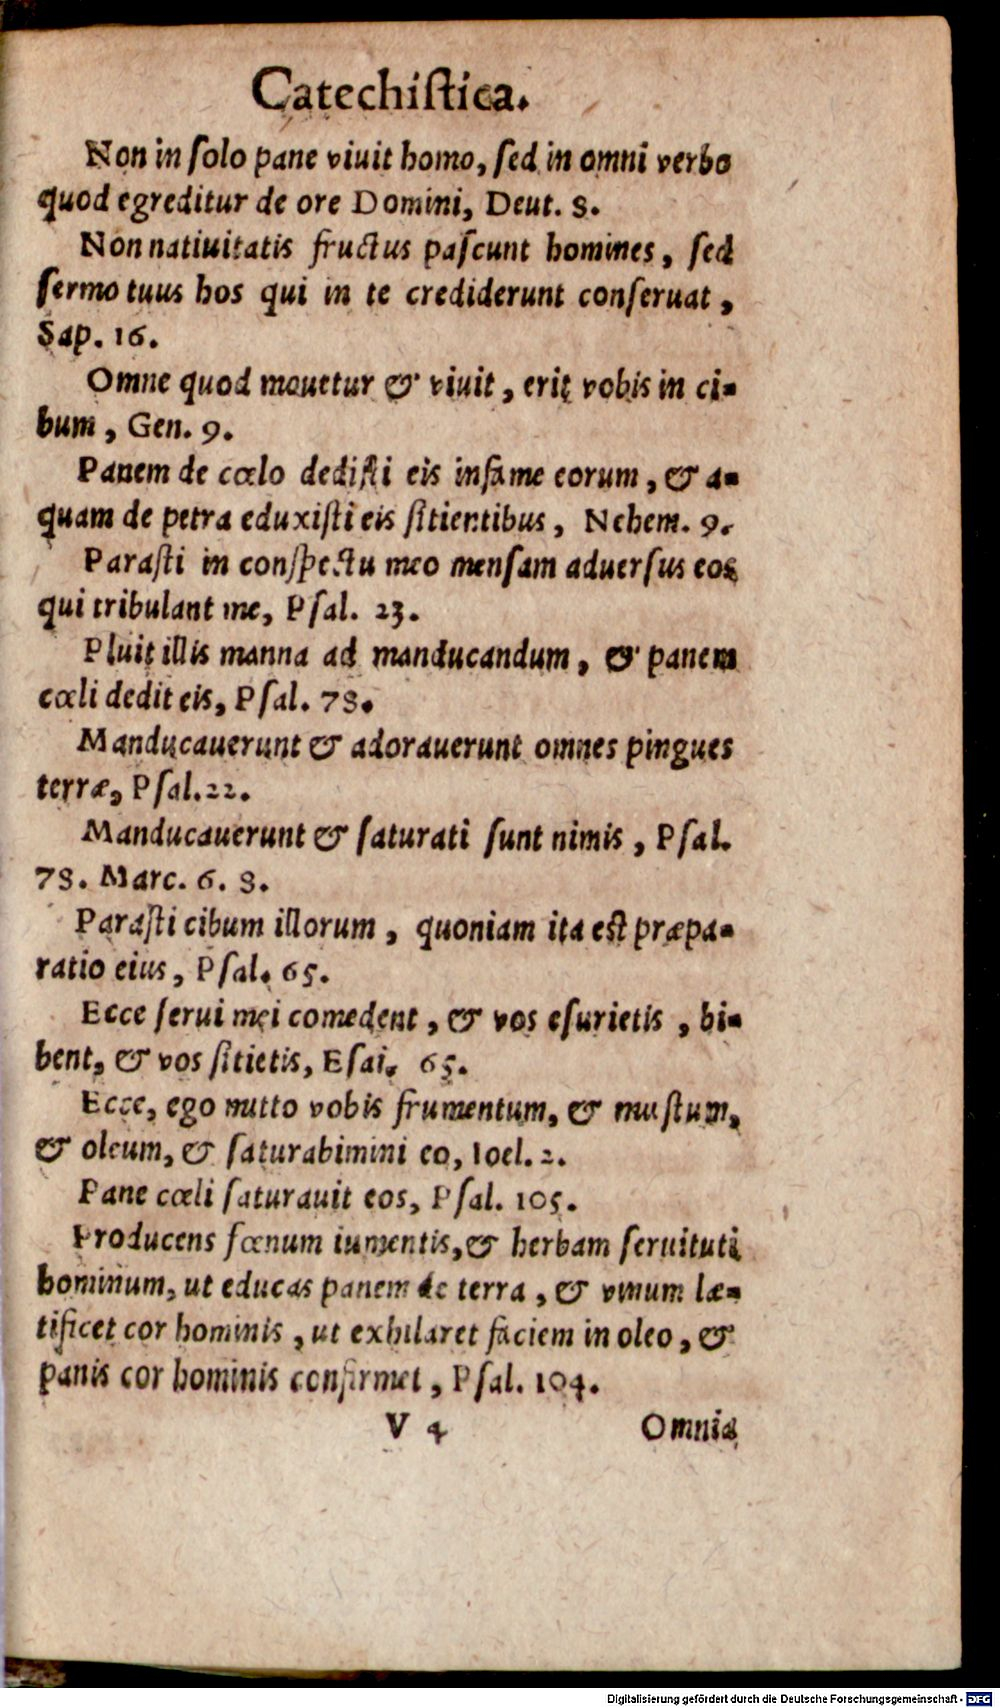 Catechiſtica.
Non in ſolo pane viuit homo, ſed in omni verbo
quod egreditur de ore Domini, Deut. 8.
Non natiuitatis fructus paſcunt homines, ſed
ſermo tuus hos qui in te crediderunt conſeruat,
Sap. 16.
Omne quod mouetur & viuit, erit vobis in ci-
bum, Gen. 9.
Panem de cœlo dediſti eis in fame eorum, & a-
quam de petra eduxiſti eis ſitientibus, Nehem. 9.
Paraſti in conſpectu meo menſam aduerſus eos
qui tribulant me, Pſal. 23.
Pluit illis manna ad manducandum, & panem
cœli dedit eis, Pſal. 78.
Manducauerunt & adorauerunt omnes pingues
terræ, Pſal. 22.
Manducauerunt & ſaturati ſunt nimis, Pſal.
78. Marc. 6. 8.
Paraſti cibum illorum, quoniam ita eſt præpa-
ratio eius, Pſal. 65.
Ecce ſerui mei comedent, & vos eſurietis, bi-
bent, & vos ſitietis, Eſai. 65.
Ecce, ego mitto vobis frumentum, & muſtum,
& oleum, & ſaturabimini eo, Ioel. 2.
Pane cœli ſaturauit eos, Pſal. 105.
Producens fœnum iumentis, & herbam ſeruituti
hominum, ut educas panem de terra, & vinum læ-
tificet cor hominis, ut exhilaret faciem in oleo, &
panis cor hominis confirmet, Pſal. 104.
V 4 Omnia
Digitalisierung gefördert durch die Deutsche Forschungsgemeinschaft - DFG